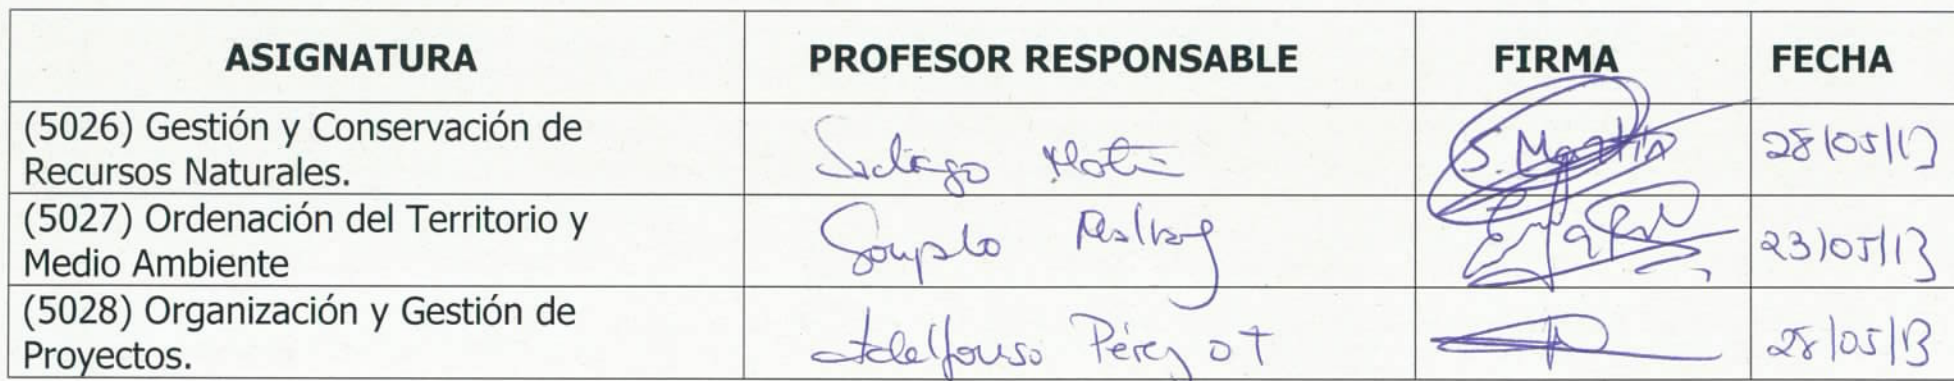 ASIGNATURA PROFESOR RESPONSABLE FIRMA FECHA
(5026) Gestión y Conservación de
Recursos Naturales.
Santiago Martín S. Martín 28/05/13
(5027) Ordenación del Territorio y
Medio Ambiente
23/05/13
(5028) Organización y Gestión de
Proyectos.
Ildefonso Pérez OT 28/05/13